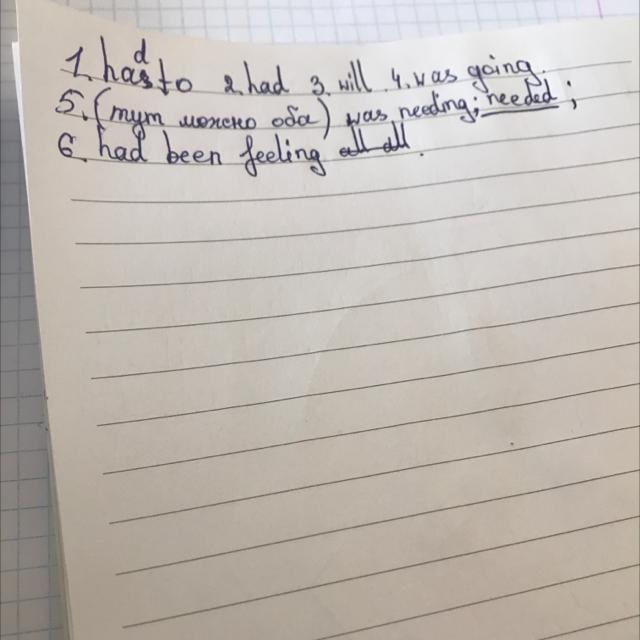 1. had to 2. had 3. will 4. was going.
5. (тут можно оба) was needing; needed;
6. had been feeling all all.